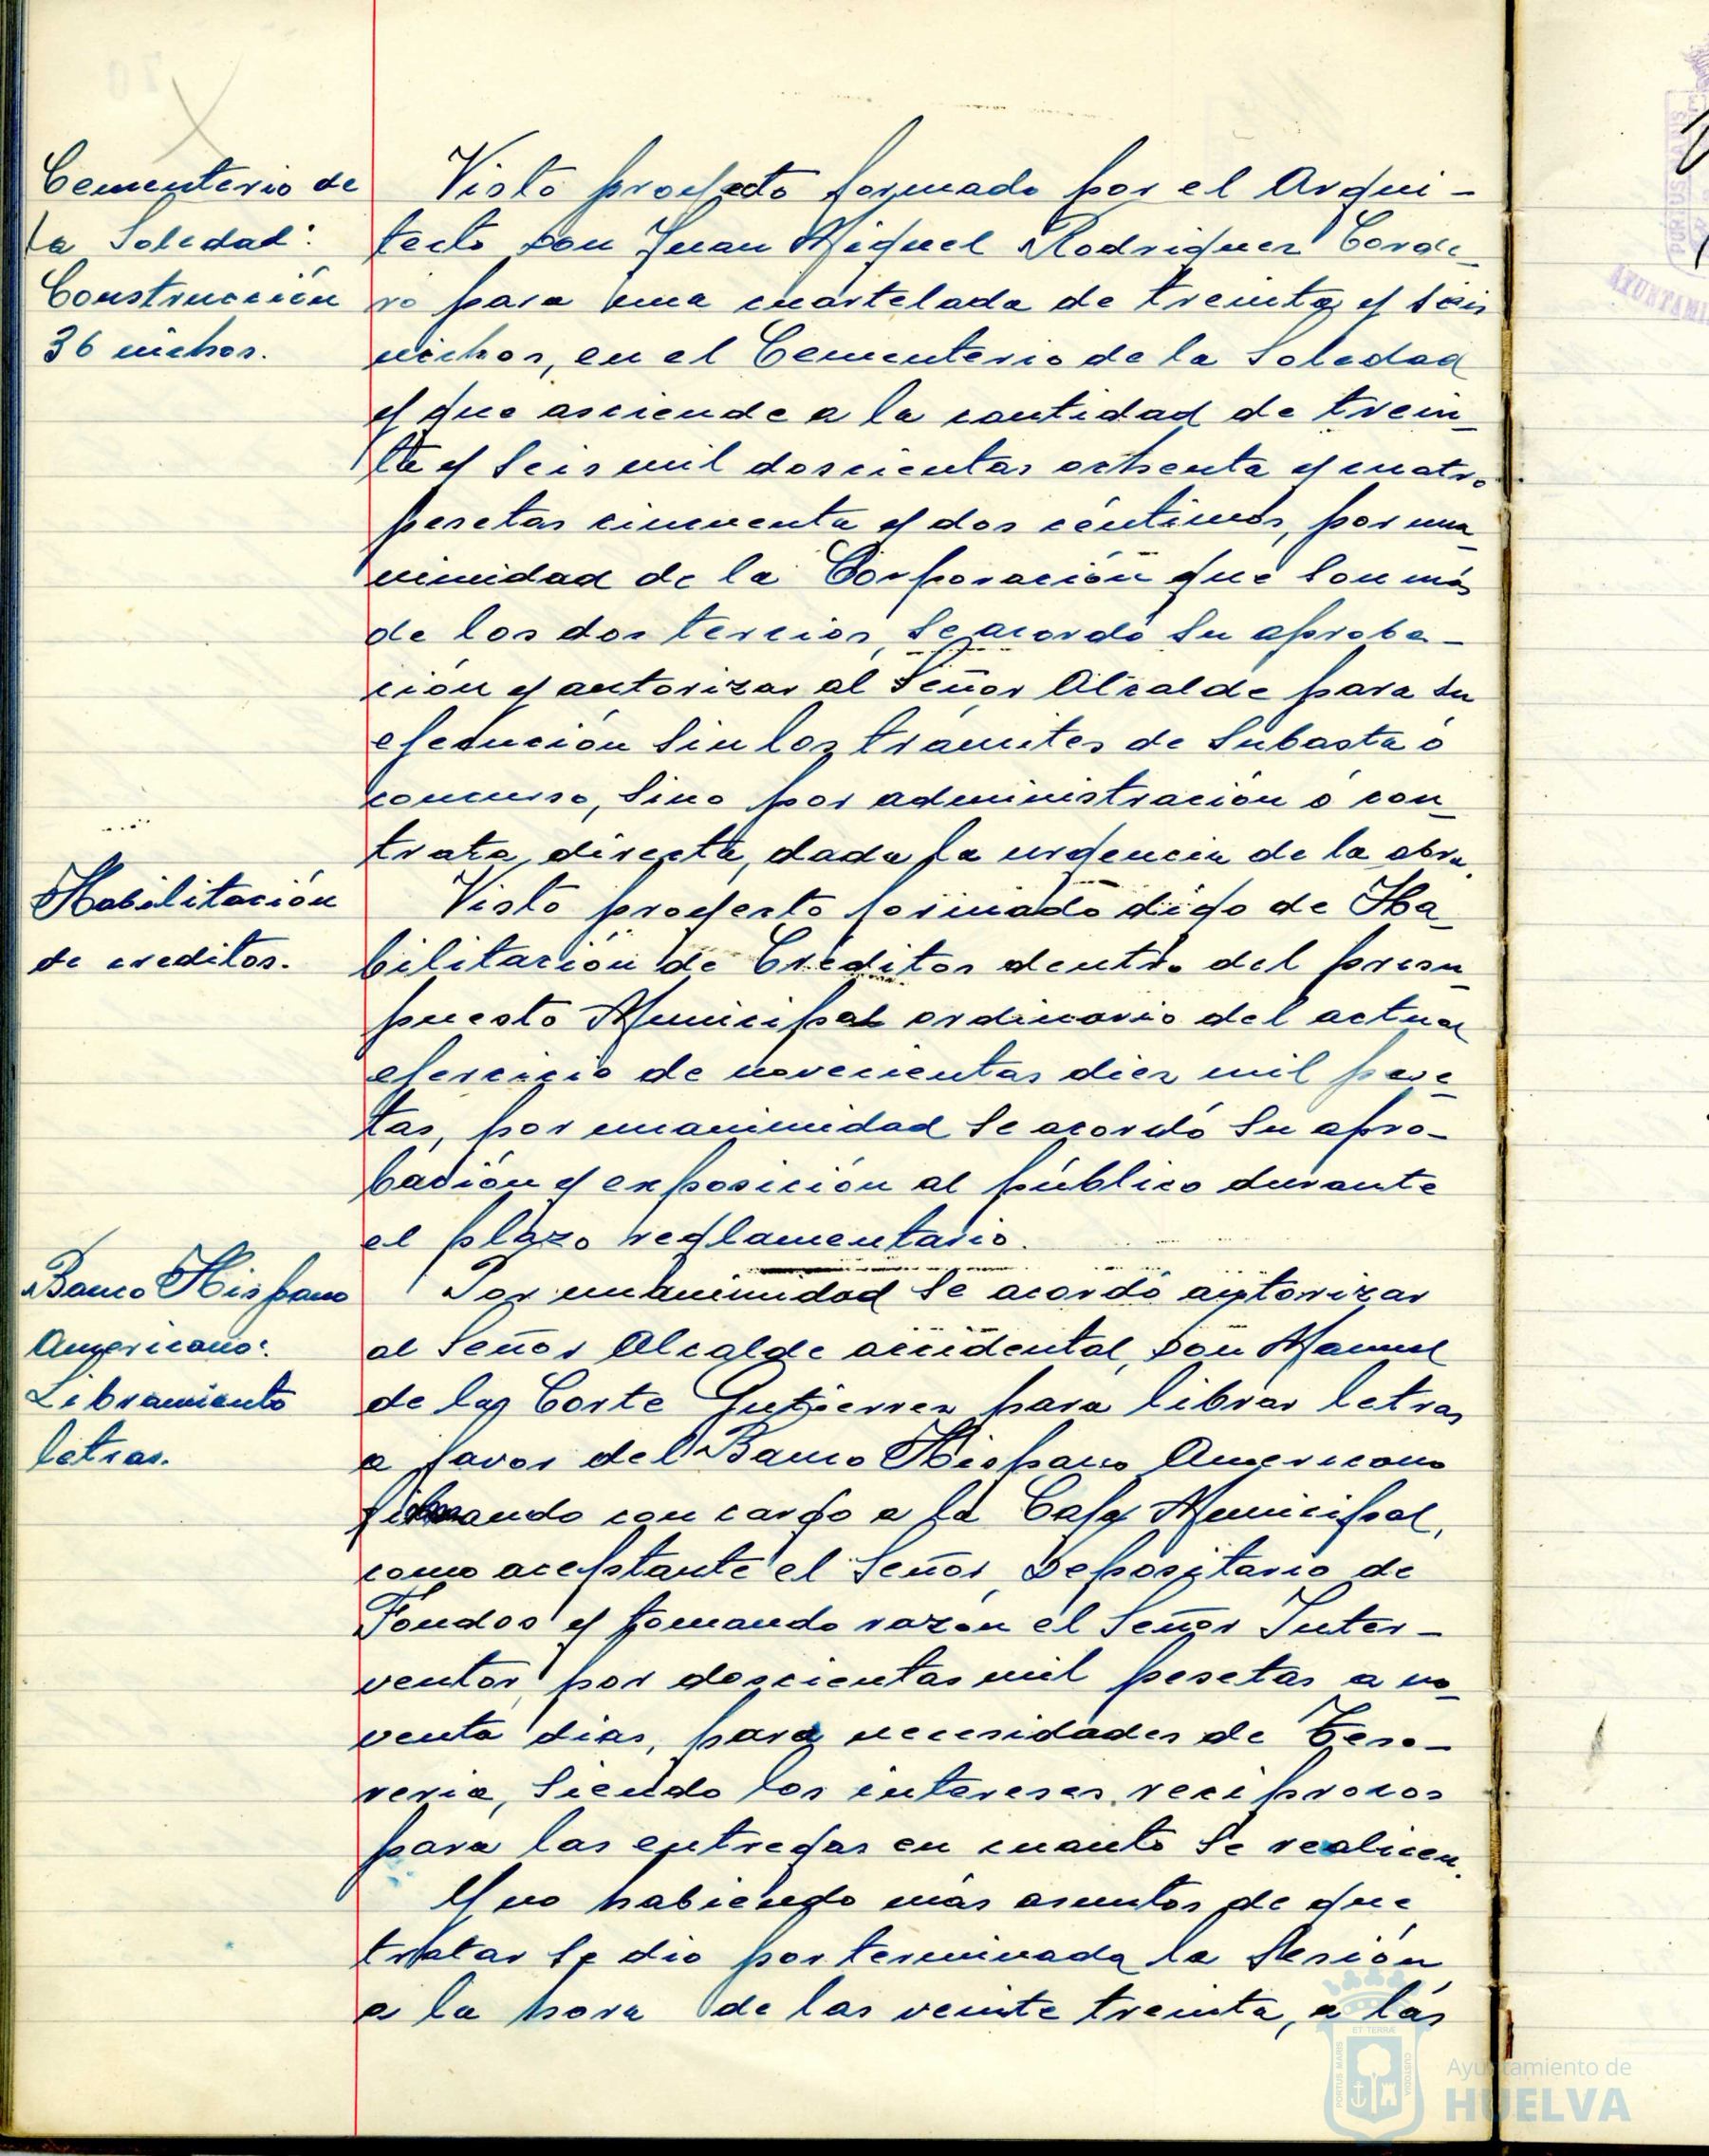 Cementerio de
la Soledad:
Construcción
36 nichos.
Visto proyecto formado por el Arqui-
tecto don Juan Miguel Rodriguez Corde-
ro para una cuartelada de treinta y seis
nichos, en el Cementerio de la Soledad
y que asciende a la cantidad de trein-
ta y seis mil doscientas ochenta y cuatro
pesetas cincuenta y dos céntimos, por una-
nimidad de la Corporación que son más
de los dos tercios, se acordó su aproba-
ción y autorizar al Señor Alcalde para su
ejecución sin los trámites de subasta ó
concurso, sino por administración ó con-
trata directa, dada la urgencia de la obra.
Habilitación
de creditos.
Visto proyecto formado digo de Ha-
bilitación de Créditos dentro del presu-
puesto Municipal ordinario del actual
ejercicio de novecientas diez mil pese-
tas, por unanimidad se acordó su apro-
bación y exposición al público durante
el plazo reglamentario.
Banco Hispano
Americano:
Libramiento
letras.
Por unanimidad se acordó autorizar
al Señor Alcalde accidental, don Manuel
de la Corte Gutierrez para librar letras
a favor del Banco Hispano Americano
librando con cargo a la Caja Municipal,
como aceptante el Señor Depositario de
Fondos y tomando razón el Señor Inter-
ventor por doscientas mil pesetas a no-
venta dias, para necesidades de Teso-
reria, siendo los intereses reciprocos
para las entregas en cuanto se realicen.
Y no habiendo más asuntos de que
tratar se dió por terminada la Sesión
a la hora de las veinte treinta, a las
PORTUS MARIS
ET TERRÆ
CUSTODIA
Ayuntamiento de
HUELVA